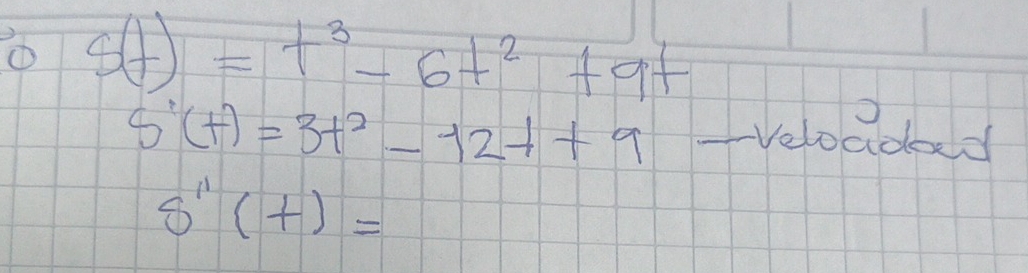 s(t) = t³ - 6t² + 9t
s'(t) = 3t² - 12t + 9 — Velocidad
s''(t) =